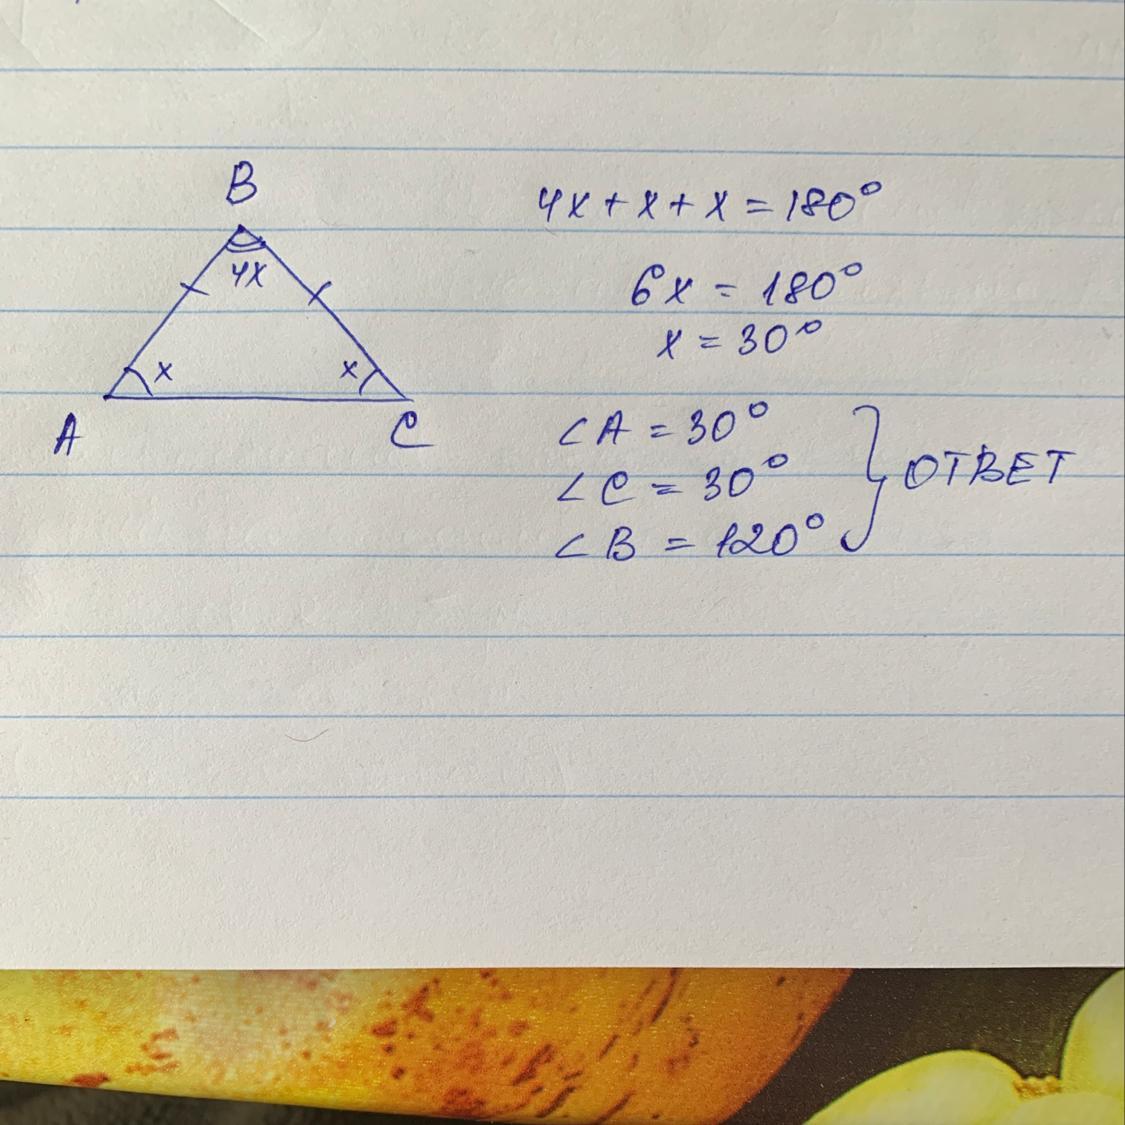 B
4x
x
x
A
C
4x + x + x = 180°
6x = 180°
x = 30°
∠A = 30°
∠C = 30°
∠B = 120°
} ОТВЕТ